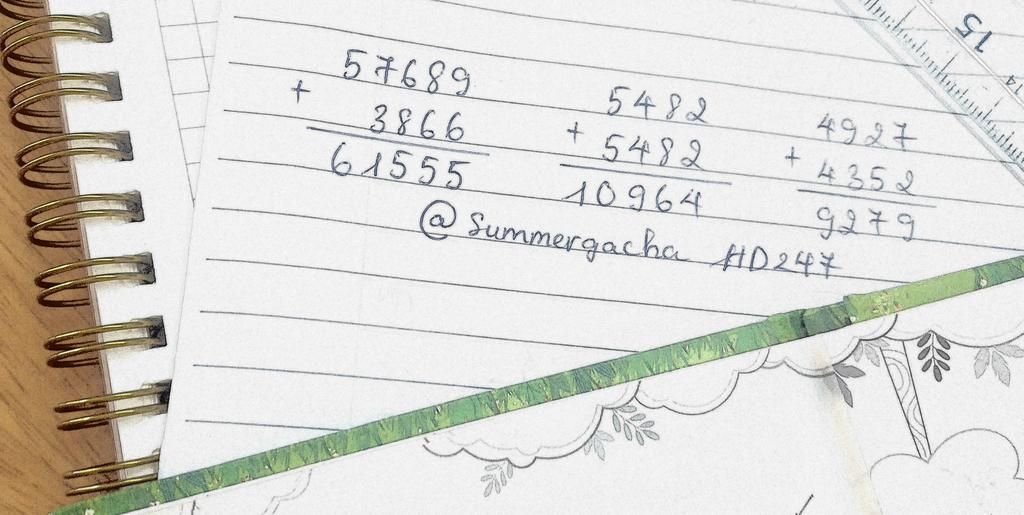 57689
+ 3866
61555
5482
+ 5482
10964
4927
+ 4352
9279
@Summergacha HD247
15
14